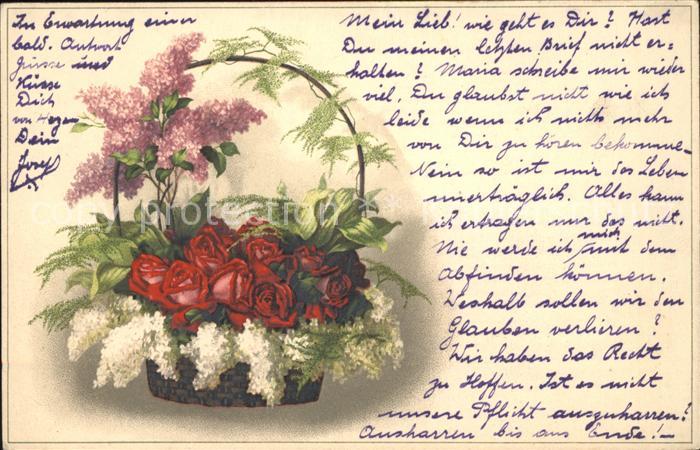 Mein Lieb! wie geht es Dir? Hast
Du meinen letzten Brief nicht er-
halten? Maria schreibe mir wieder
viel. Du glaubst nicht wie ich
leide wenn ich nichts mehr
von Dir zu hören bekomme.
Nein so ist mir das Leben
unerträglich. Alles kann
ich ertragen nur das nicht.
Nie werde ich mich mit dem
Abfinden können.
Weshalb sollen wir den
Glauben verlieren?
Wir haben das Recht
zu Hoffen. Ist es nicht
unsere Pflicht auszuharren?
Ausharren bis ans Ende!—
In Erwartung einer
bald. Antwort
grüsse und
Küsse
Dich
von Herzen
Dein
Josef
copyright protection